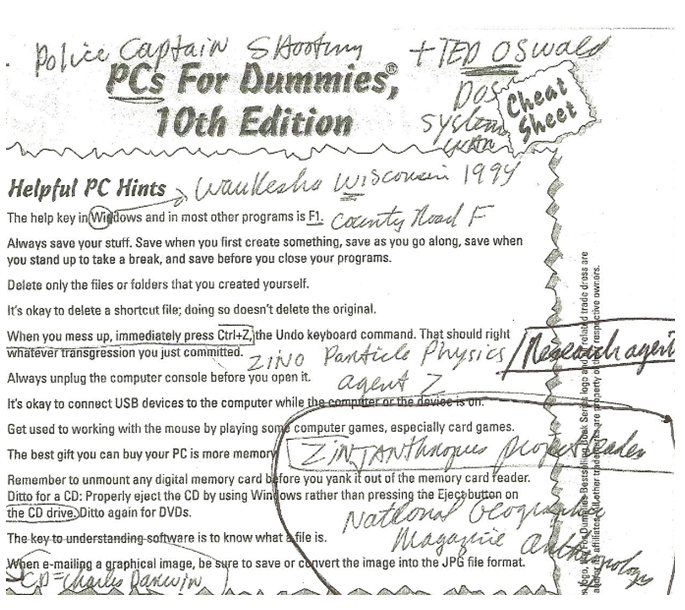 Police Captain Shooting + TED OSWALD
PCs For Dummies,®
10th Edition
DOS
System
Cheat
Sheet
Helpful PC Hints
Waukesha Wisconsin 1994
The help key in Windows and in most other programs is F1.
County Road F
Always save your stuff. Save when you first create something, save as you go along, save when
you stand up to take a break, and save before you close your programs.
Delete only the files or folders that you created yourself.
It's okay to delete a shortcut file; doing so doesn't delete the original.
When you mess up, immediately press Ctrl+Z, the Undo keyboard command. That should right
whatever transgression you just committed.
ZINO Particle Physics / Research agent
Always unplug the computer console before you open it.
agent Z
It's okay to connect USB devices to the computer while the computer or the device is on.
Get used to working with the mouse by playing some computer games, especially card games.
The best gift you can buy your PC is more memory
ZINJANthropus project leader
Remember to unmount any digital memory card before you yank it out of the memory card reader.
Ditto for a CD: Properly eject the CD by using Windows rather than pressing the Eject button on
the CD drive. Ditto again for DVDs.
National Geographic
Magazine anthropology
The key to understanding software is to know what a file is.
When e-mailing a graphical image, be sure to save or convert the image into the JPG file format.
CD = Charles Darwin